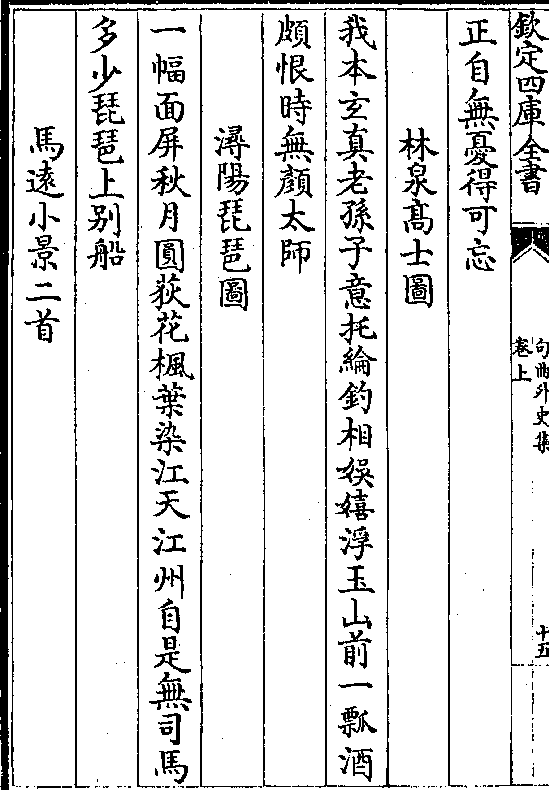 欽定四庫全書
句曲外史集
卷上
十五
正自無憂得可忘
林泉髙士圖
我本玄真老孫子意托綸釣相娛嬉浮玉山前一瓢酒
頗恨時無顔太師
潯陽琵琶圖
一幅面屏秋月圓荻花楓葉染江天江州自是無司馬
多少琵琶上别船
馬逺小景二首